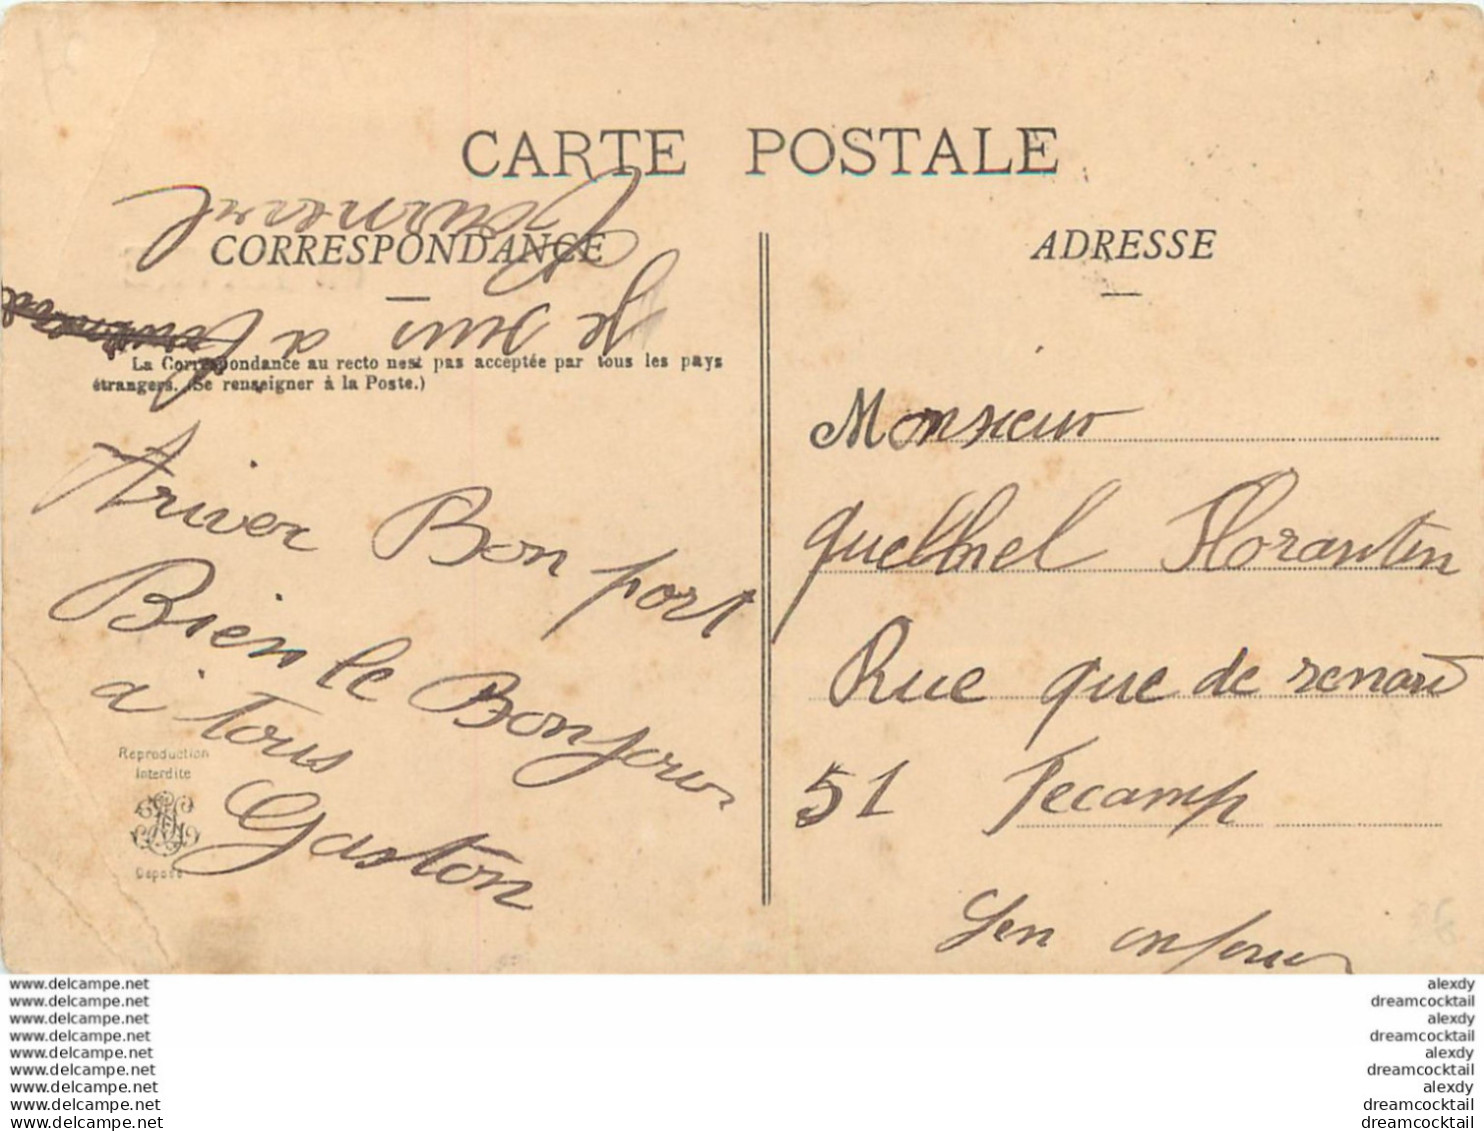 CARTE POSTALE
CORRESPONDANCE
ADRESSE
Je suis a
La Correspondance au recto n'est pas acceptée par tous les pays
étrangers. (Se renseigner à la Poste.)
Ariver Bon port
Bien le Bonjour
a tous
Gaston
Reproduction
Interdite
Déposé
Monsieur
quelhnel Florantin
Rue que de renard
51 Fecamp
www.delcampe.net
www.delcampe.net
www.delcampe.net
www.delcampe.net
www.delcampe.net
www.delcampe.net
www.delcampe.net
www.delcampe.net
www.delcampe.net
alexdy
dreamcocktail
alexdy
dreamcocktail
alexdy
dreamcocktail
alexdy
dreamcocktail
dreamcocktail